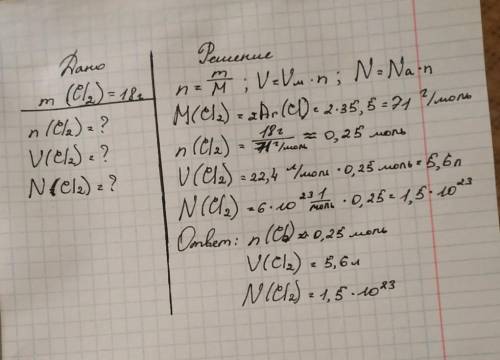 Дано
m (Cl₂) = 18г
n (Cl₂) = ?
V (Cl₂) = ?
N (Cl₂) = ?
Решение
n = m/M ; V = Vм · n ; N = Na · n
M (Cl₂) = 2Ar(Cl) = 2 · 35,5 = 71 г/моль
n (Cl₂) = 18г / 71 г/моль ≈ 0,25 моль
V (Cl₂) = 22,4 л/моль · 0,25 моль = 5,6 л
N (Cl₂) = 6 · 10²³ 1/моль · 0,25 = 1,5 · 10²³
Ответ: n (Cl₂) ≈ 0,25 моль
V (Cl₂) = 5,6 л
N (Cl₂) = 1,5 · 10²³